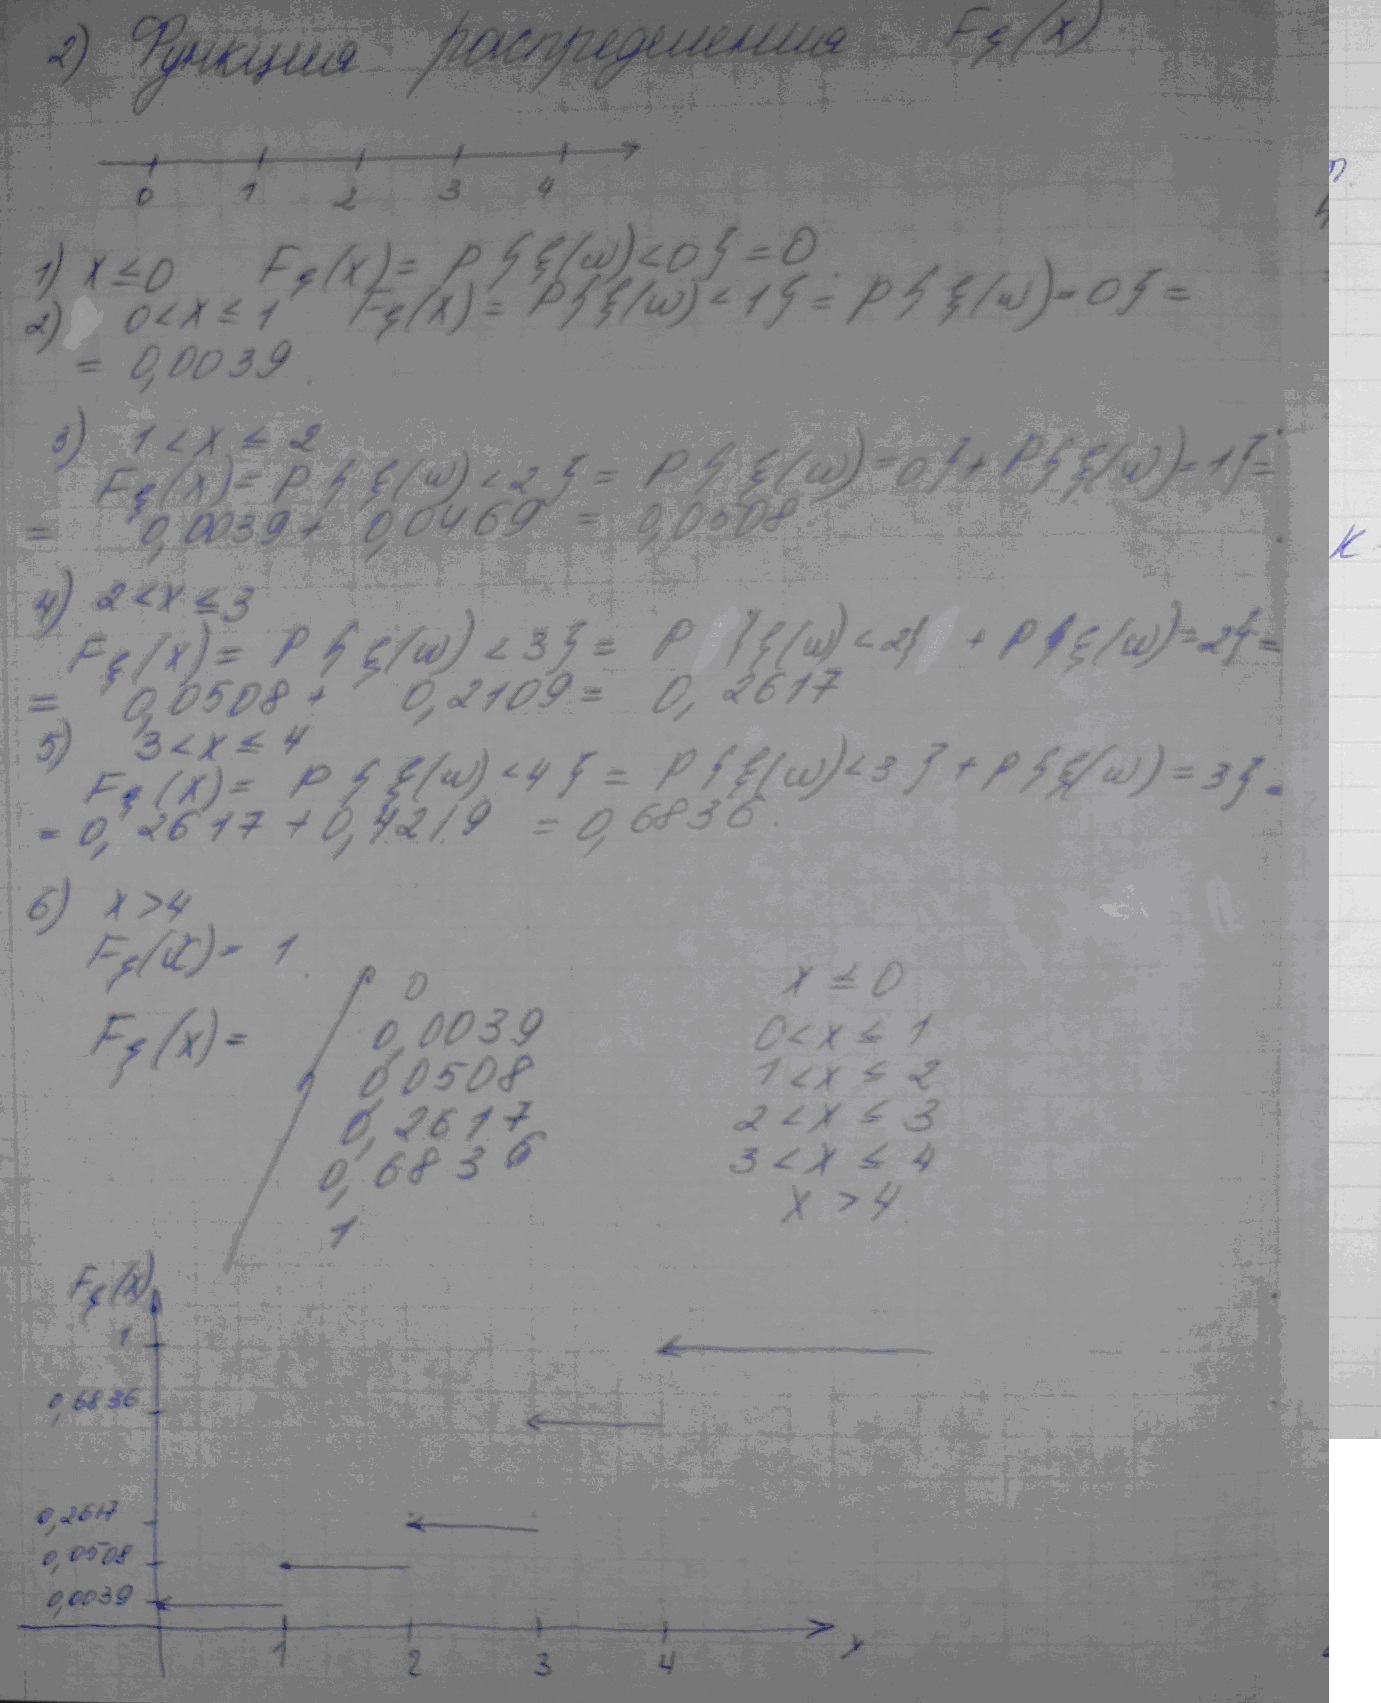 2) Функция распределения Fξ(x)
0 1 2 3 4
1) x ≤ 0 Fξ(x) = P{ξ(ω) < 0} = 0
2) 0 < x ≤ 1 Fξ(x) = P{ξ(ω) < 1} = P{ξ(ω) = 0} =
= 0,0039
3) 1 < x ≤ 2
Fξ(x) = P{ξ(ω) < 2} = P{ξ(ω) = 0} + P{ξ(ω) = 1} =
= 0,0039 + 0,0469 = 0,0508
4) 2 < x ≤ 3
Fξ(x) = P{ξ(ω) < 3} = P{ξ(ω) < 2} + P{ξ(ω) = 2} =
= 0,0508 + 0,2109 = 0,2617
5) 3 < x ≤ 4
Fξ(x) = P{ξ(ω) < 4} = P{ξ(ω) < 3} + P{ξ(ω) = 3} =
= 0,2617 + 0,4219 = 0,6836.
6) x > 4
Fξ(x) = 1.
Fξ(x) =
0 x ≤ 0
0,0039 0 < x ≤ 1
0,0508 1 < x ≤ 2
0,2617 2 < x ≤ 3
0,6836 3 < x ≤ 4
1 x > 4
Fξ(x)
1
0,6836
0,2617
0,0508
0,0039
1 2 3 4 x